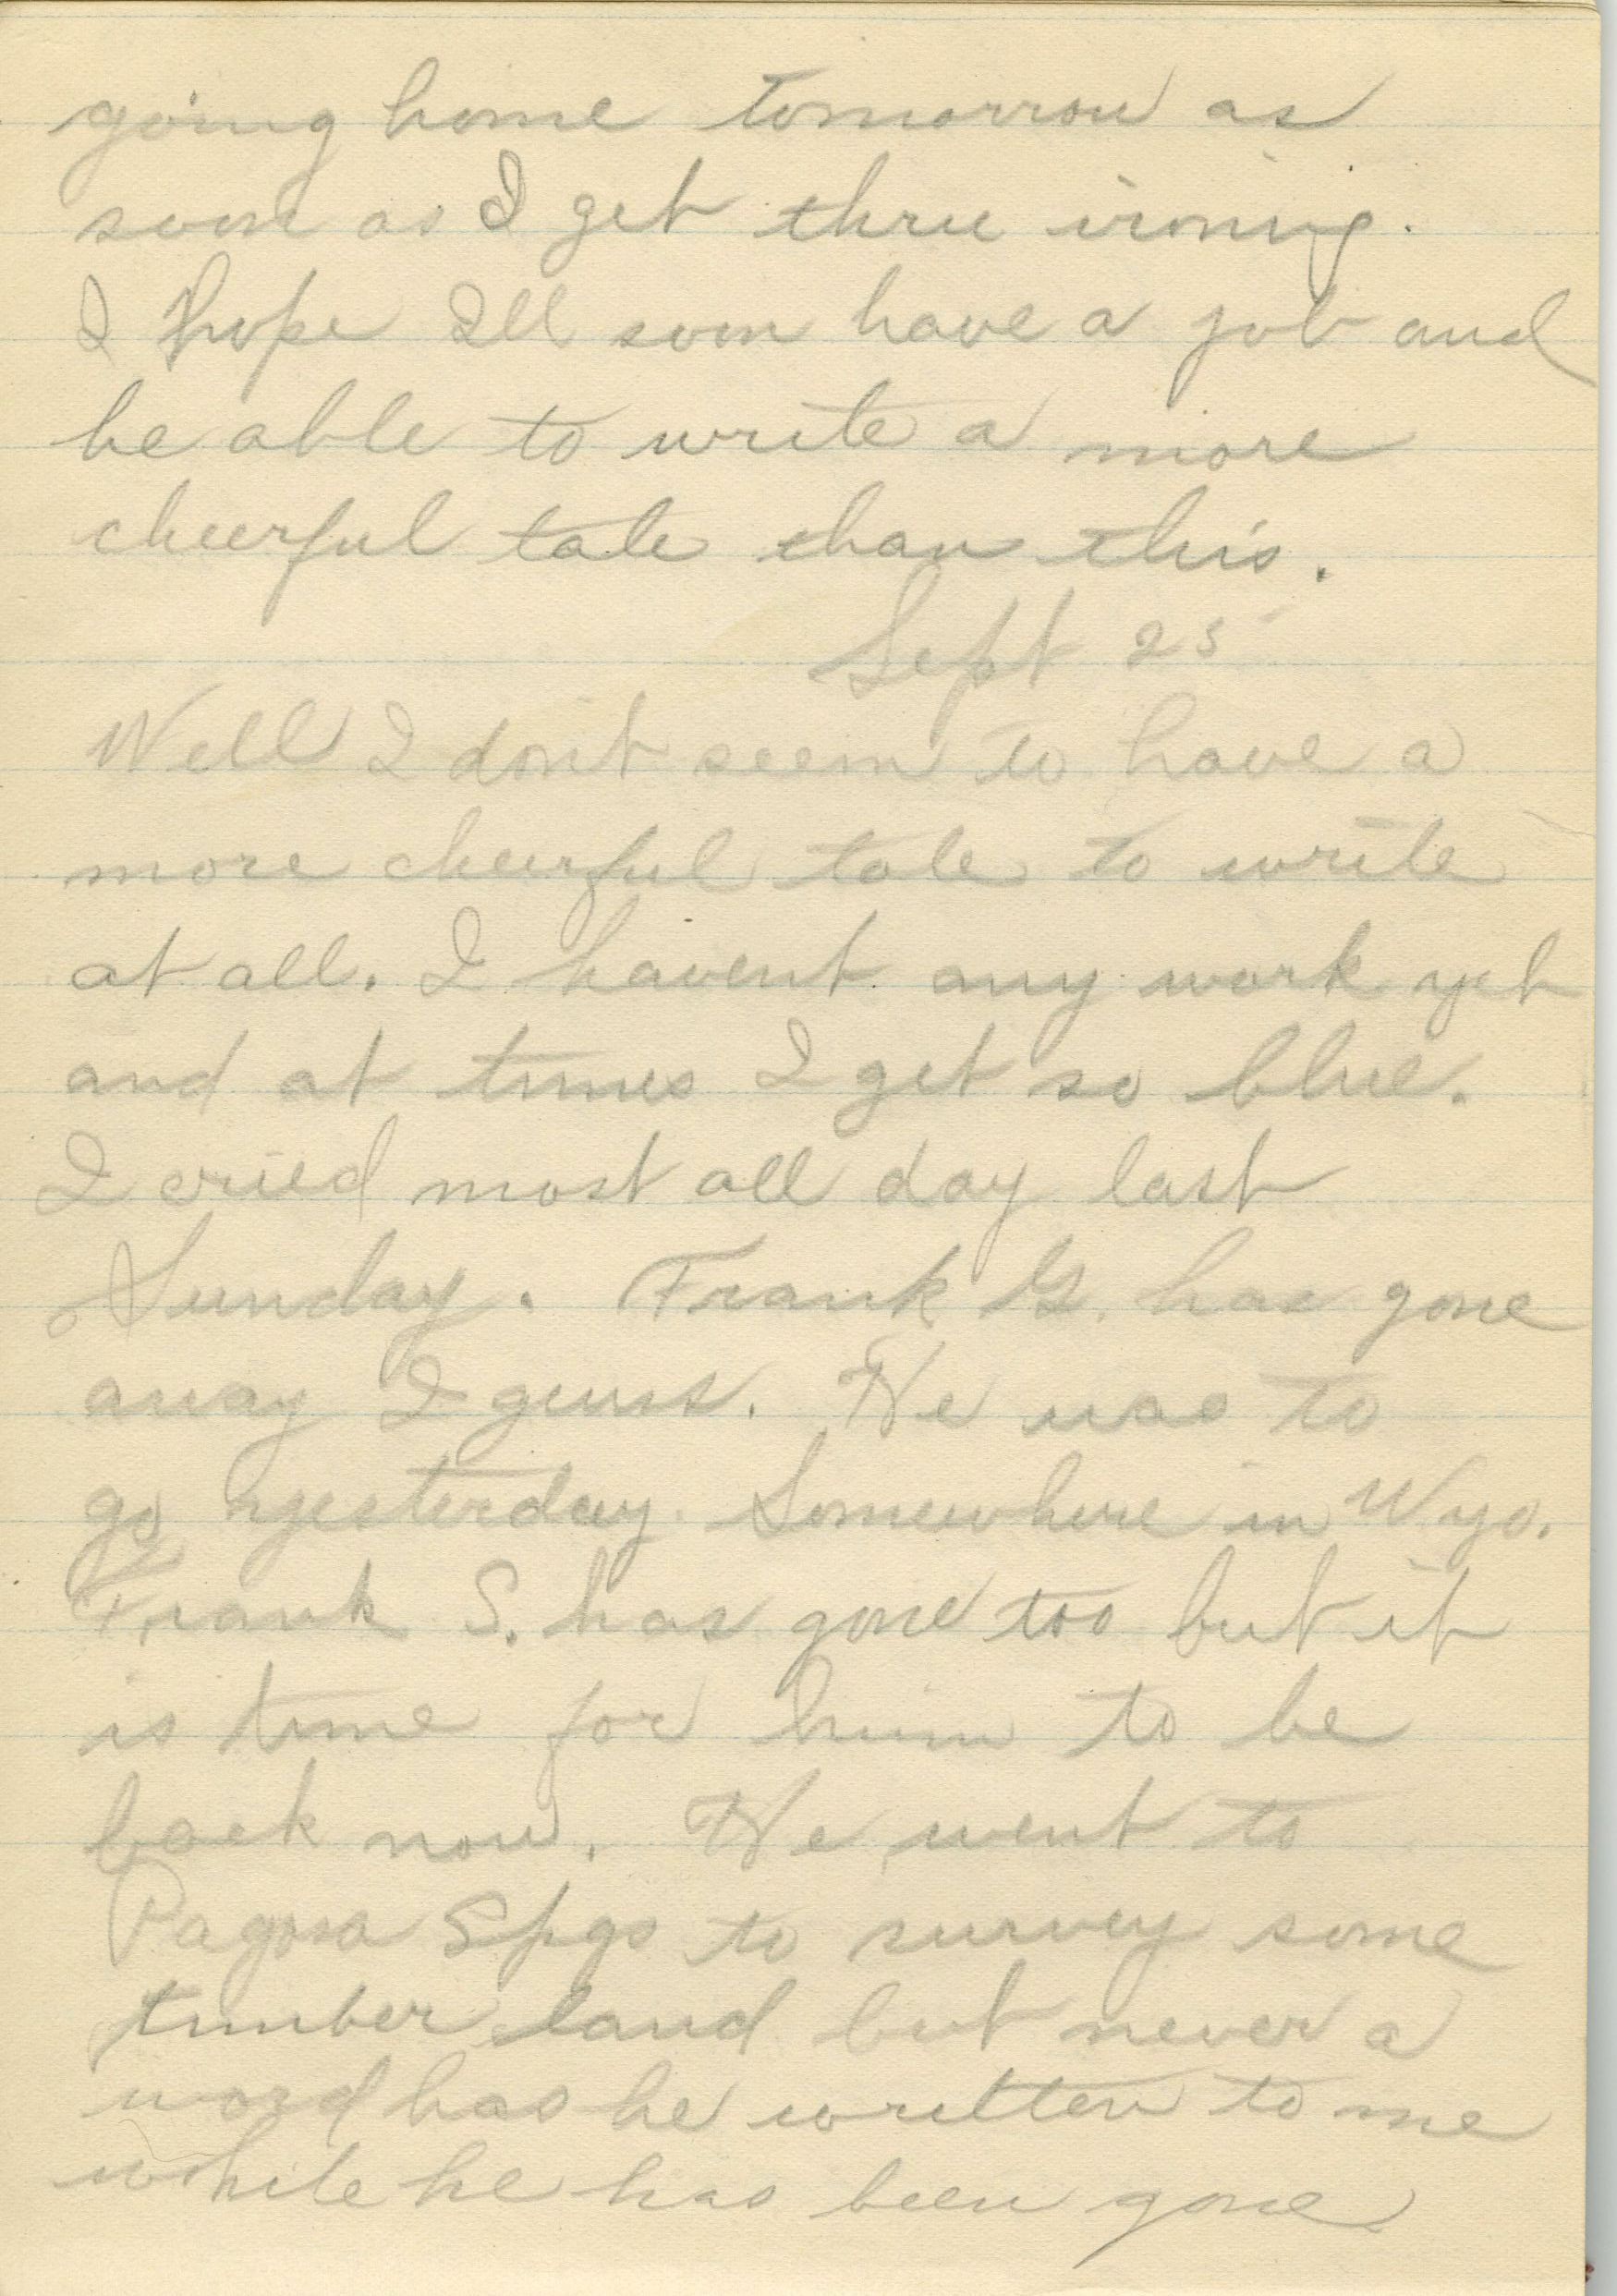 going home tomorrow as
soon as I get thru ironing.
I hope Ill soon have a job and
be able to write a more
cheerful tale than this.
Sept 25
Well I don't seem to have a
more cheerful tale to write
at all. I havent any work yet
and at times I get so blue.
I cried most all day last
Sunday. Frank G. has gone
away I guess. He was to
go yesterday. Somewhere in Wyo.
Frank S. has gone too but it
is time for him to be
back now. He went to
Pagosa Spgs to survey some
timber land but never a
word has he written to me
while he has been gone